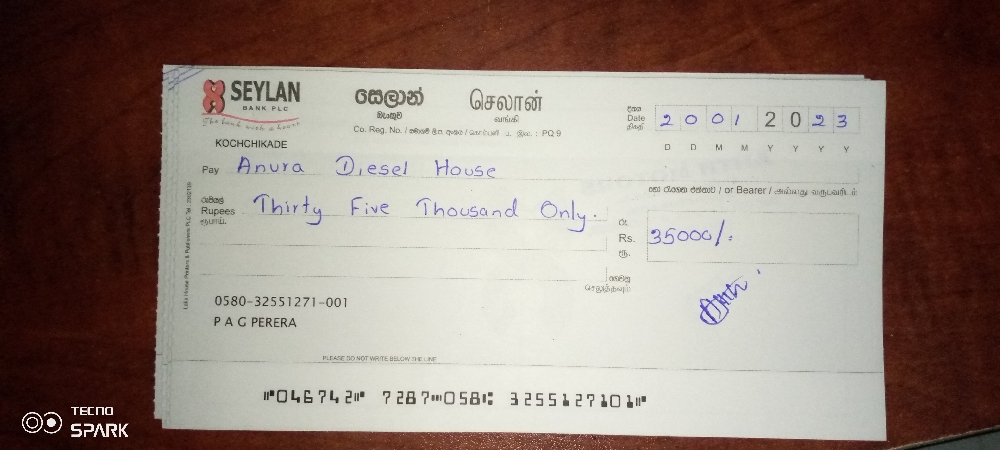 SEYLAN
BANK PLC
The bank with a heart
සෙලාන්
බැංකුව
செலான்
வங்கி
Co. Reg. No. / සමාගම් ලි.ප. අංකය / கொம்பனி ப. இல. : PQ 9
KOCHCHIKADE
දිනය
Date
திகதி
2 0 0 1 2 0 2 3
D D M M Y Y Y Y
Pay Anura Diesel House
හෝ රැගෙන එන්නාට / or Bearer / அல்லது வருபவரிடம்
රුපියල්
Rupees Thirty Five Thousand Only.
ரூபாய்
රු.
Rs. 35000/-
ரூ.
ගෙවනු
செலுத்தவும்
0580-32551271-001
P A G PERERA
PLEASE DO NOT WRITE BELOW THIS LINE
⑈046742⑈ 7287⑉058⑆ 3255127101⑈
TECNO
SPARK